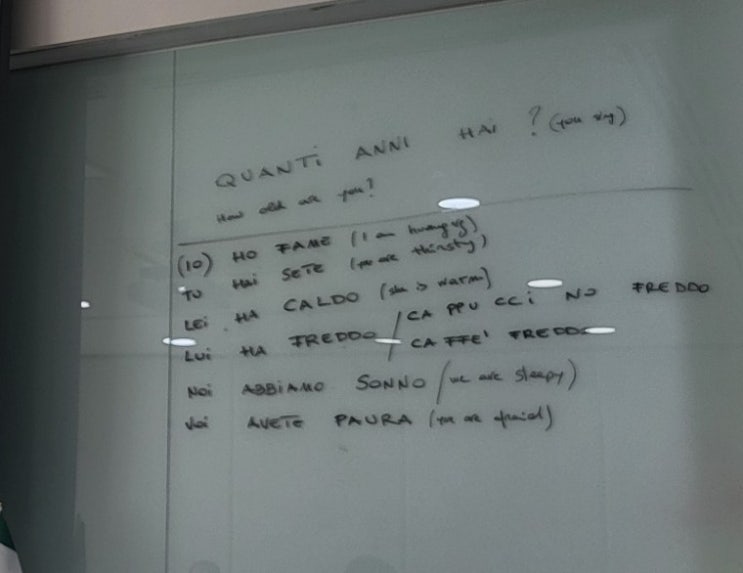 QUANTI ANNI HAI ? (you sing)
How old are you?
(IO) HO FAME (I am hungry)
TU HAI SETE (you are thirsty)
LEI HA CALDO (she is warm)
LUI HA FREDDO / CAPPUCCINO FREDDO
CAFFE' FREDDO
NOI ABBIAMO SONNO (we are sleepy)
VOI AVETE PAURA (you are afraid)